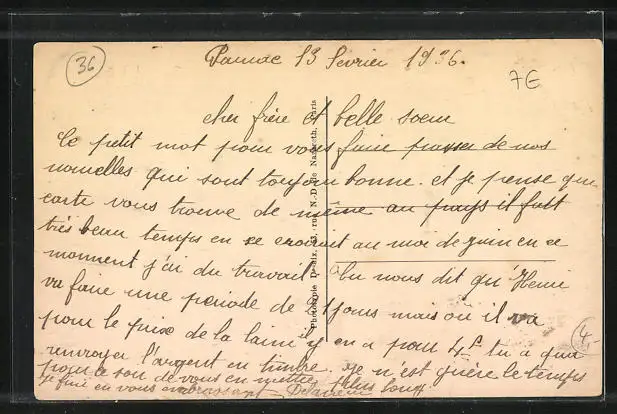 36
Parnac 13 fevrier 1936.
7€
cher frère et belle soeur
Ce petit mot pour vous faire passer de nos
nouvelles qui sont toujour bonne. et je pense que
carte vous trouve de même au pays il fait
très beau temps on se croirait au moi de juin en ce
moment j'ai du travail. tu nous dit qu'Henri
va faire une periode de 21 jours mais où il va
pour le prix de la laine il y en a pour 4f tu a qua
renvoyer l'argent en timbre. je n'est guère le temps
pour ce soir de vous en mettre plus long.
je fini en vous embrassant
Photographie Desaix, rue N.-D. de Nazareth, Paris
4,-